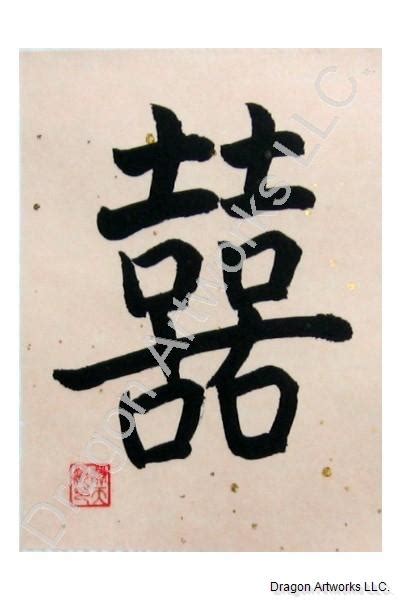 囍
Dragon Artworks LLC.
Dragon Artworks LLC.